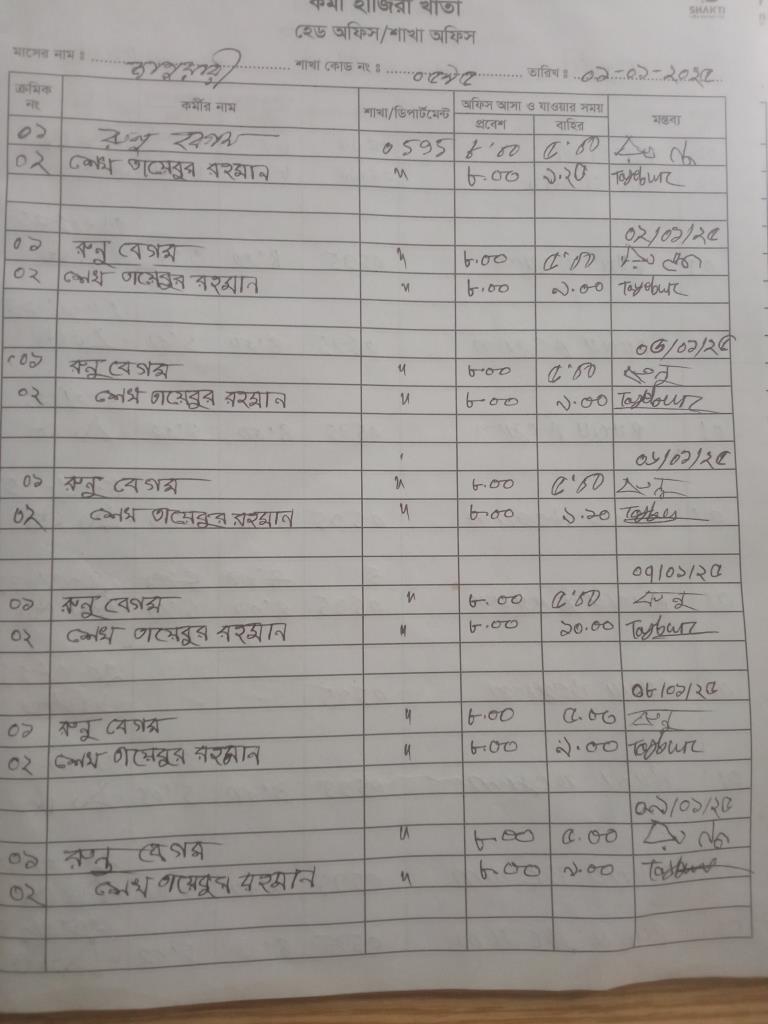 কর্মী হাজিরা খাতা
SHAKTI
হেড অফিস/শাখা অফিস
মাসের নাম : জানুয়ারী শাখা কোড নং : ০৫৯৫ তারিখ : ০১-০১-২০২৫
ক্রমিক নং কর্মীর নাম শাখা/ডিপার্টমেন্ট অফিস আসা ও যাওয়ার সময় মন্তব্য
প্রবেশ বাহির
০১ রুনু বেগম 0595 ৮.০০ ৫.০০
০২ শেখ তায়েবুর রহমান " ৮.০০ ৯.২০ Tayebur
০২/০১/২৫
০১ রুনু বেগম " ৮.০০ ৫.০০
০২ শেখ তায়েবুর রহমান " ৮.০০ ৯.০০ Tayebur
০৫/০১/২৫
০১ রুনু বেগম " ৮.০০ ৫.০০ রুনু
০২ শেখ তায়েবুর রহমান " ৮.০০ ৯.০০ Tayebur
০৬/০১/২৫
০১ রুনু বেগম " ৮.০০ ৫.০০ রুনু
০২ শেখ তায়েবুর রহমান " ৮.০০ ৯.২০
০৭/০১/২৫
০১ রুনু বেগম " ৮.০০ ৫.০০ রুনু
০২ শেখ তায়েবুর রহমান " ৮.০০ ১০.০০ Tayebur
০৮/০১/২৫
০১ রুনু বেগম " ৮.০০ ৫.০০ রুনু
০২ শেখ তায়েবুর রহমান " ৮.০০ ৯.০০ Tayebur
০৯/০১/২৫
০১ রুনু বেগম " ৮.০০ ৫.০০
০২ শেখ তায়েবুর রহমান " ৮.০০ ৯.০০